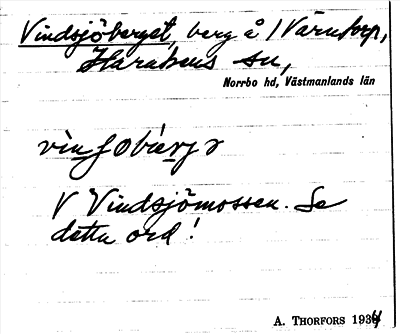 Vindsjöberget, berg å 1 Värutorp,
Harakers sn,
Norrbo hd, Västmanlands län
V Vindsjömossen. Se
detta ord!
A. THORFORS 1934